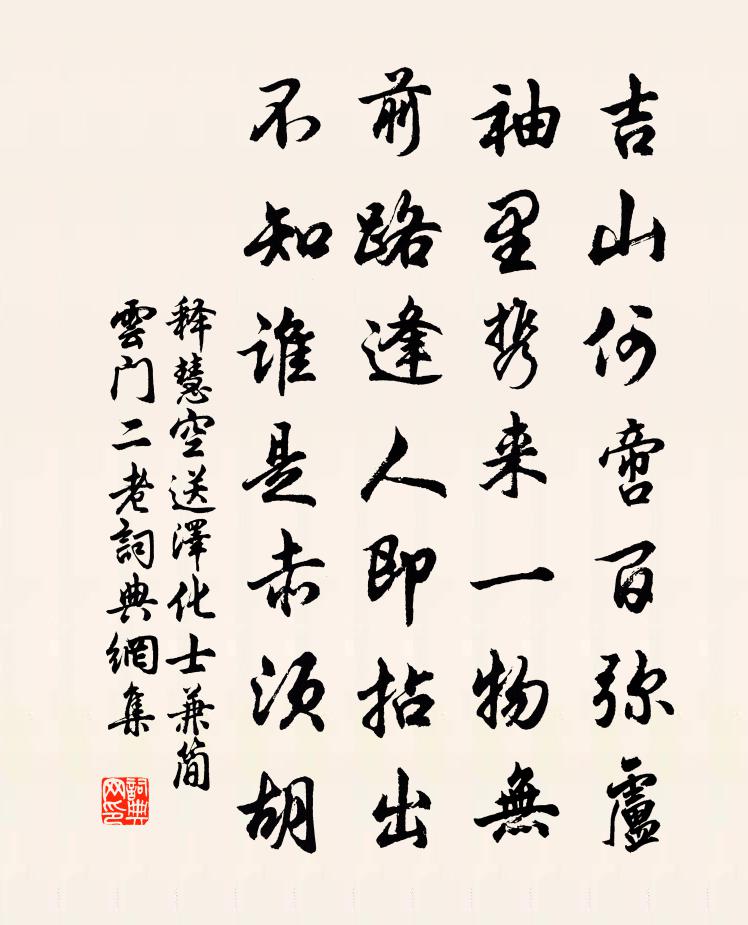 吉山何啻百弥廬
袖里携来一物無
前路逢人即拈出
不知谁是赤须胡
释慧空送澤化士兼简
雲门二老詞典網集
詞典網印